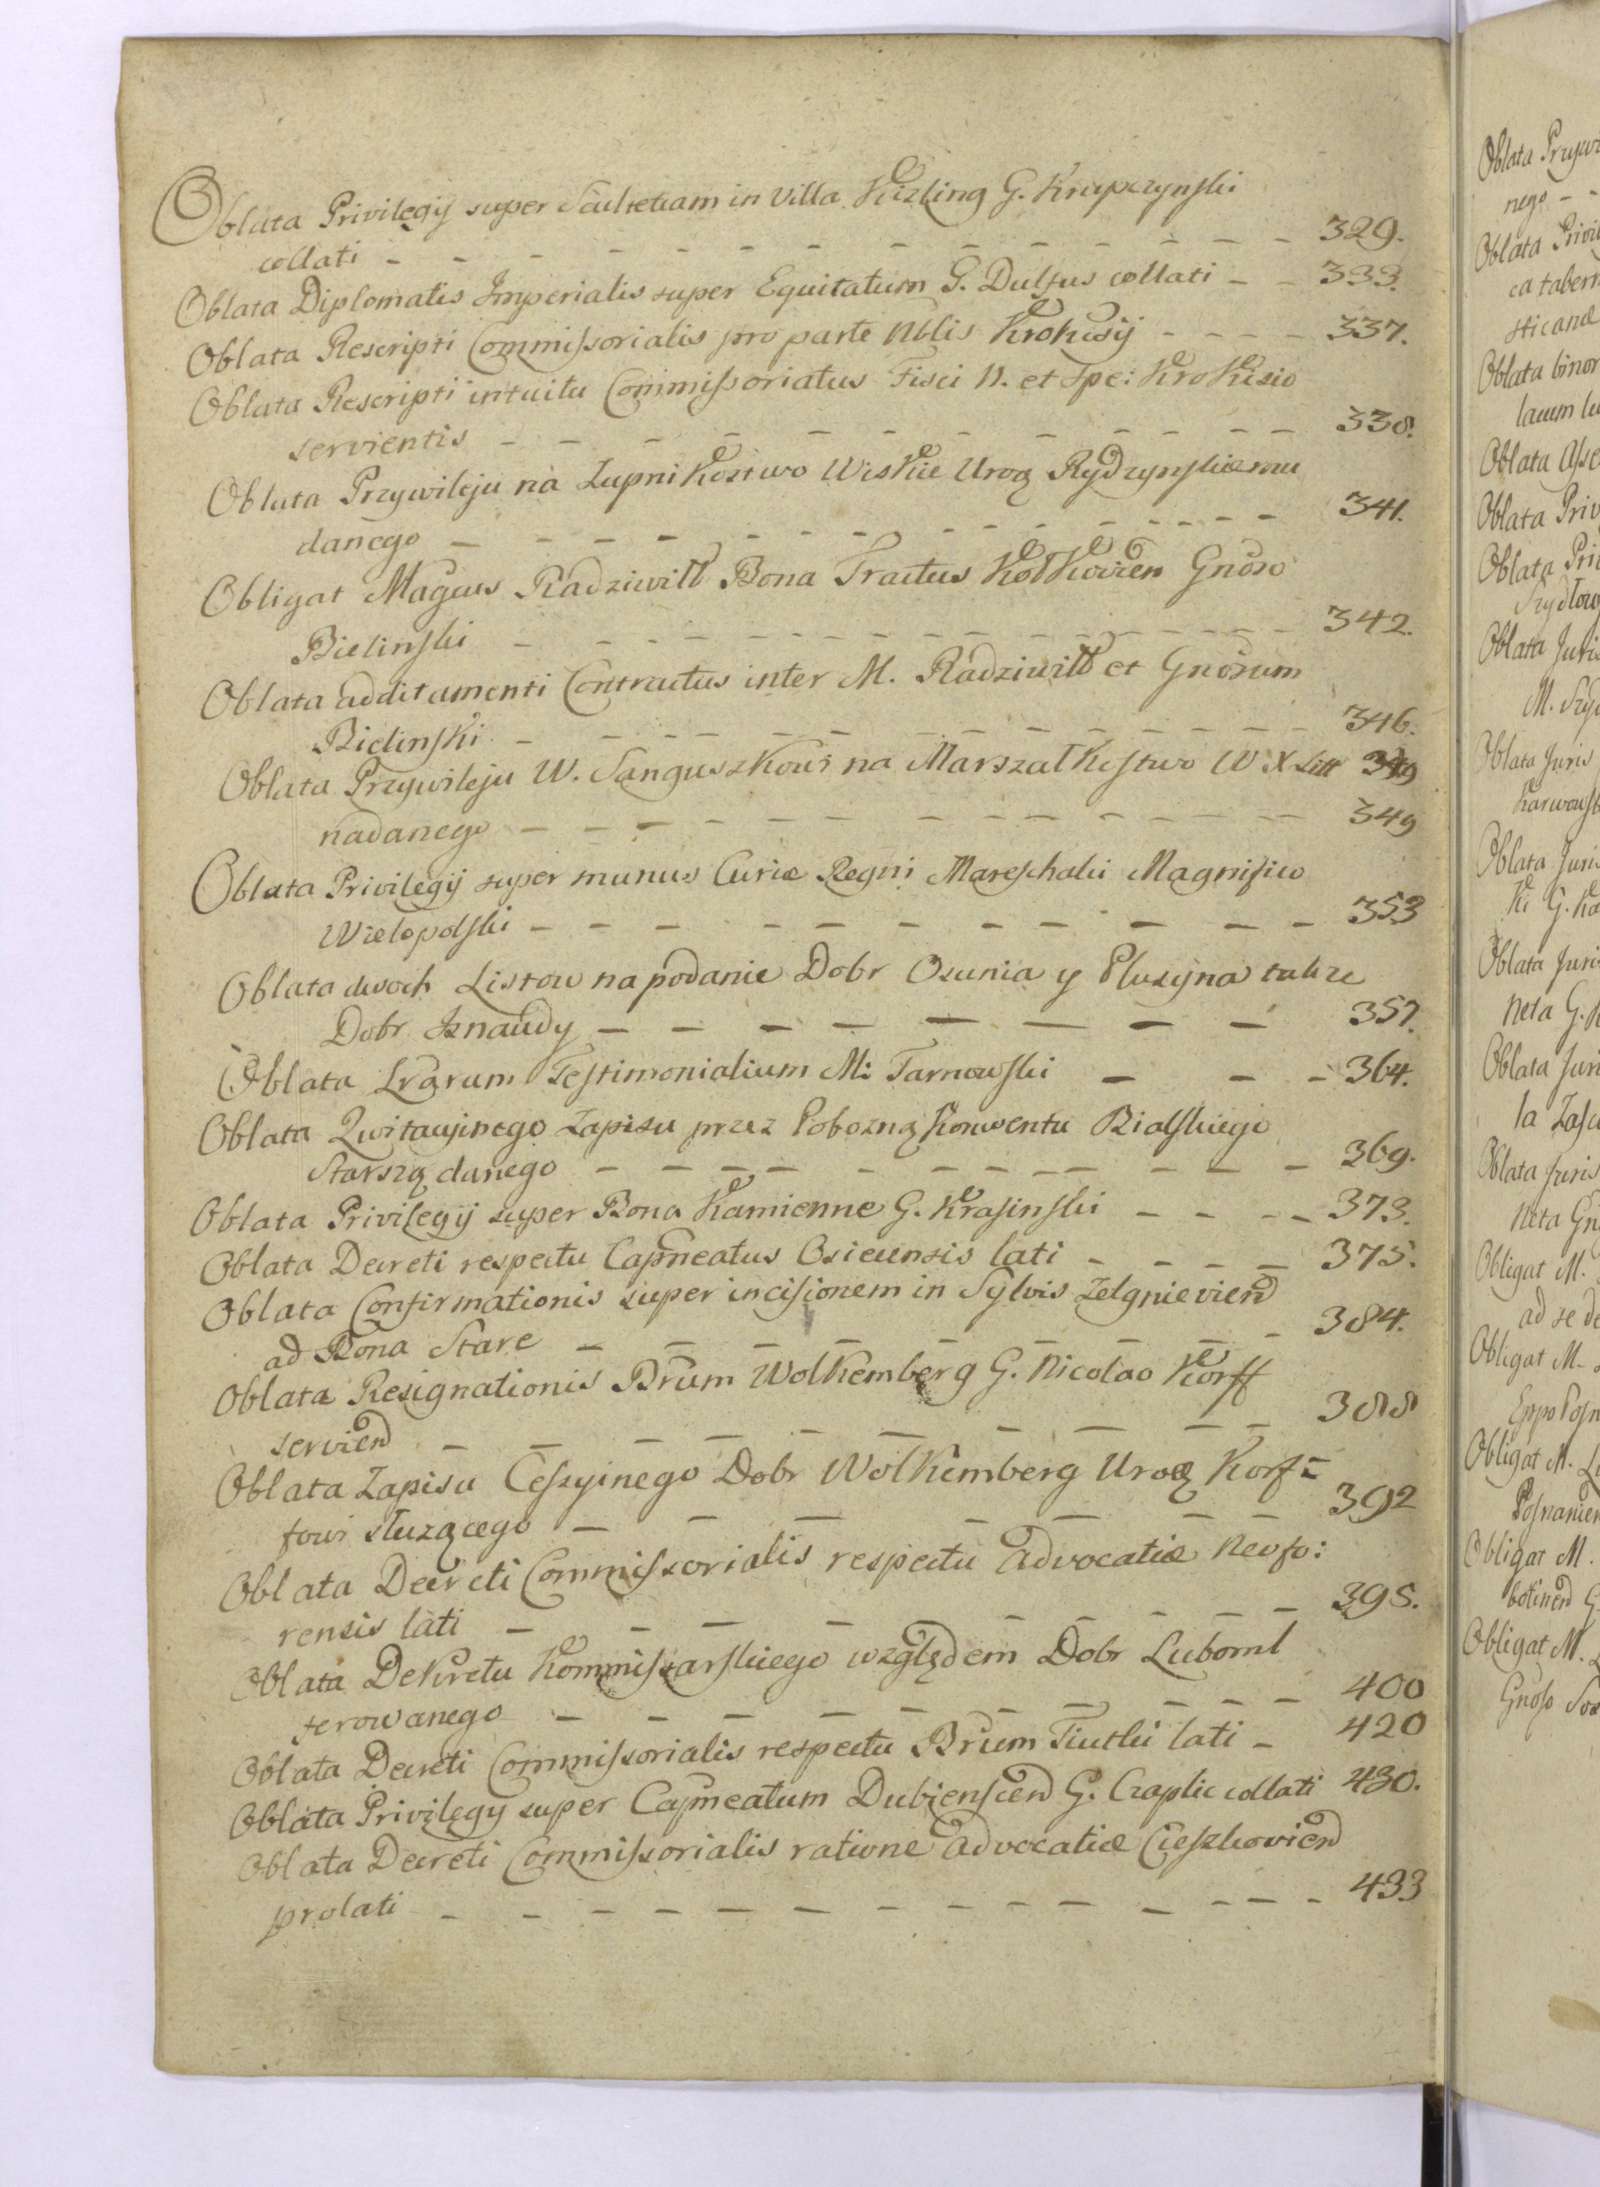 Oblata Privilegij super Scultetiam in Villa Kizling G. Krupczynski
collati - - - - - - - - - - - - 329.
Oblata Diplomatis Imperialis super Equitatum G. Dulfus collati - - 333.
Oblata Rescripti Commissorialis pro parte Nblis Krokisij - - - - 337.
Oblata Rescripti intuitu Commissoriatus Fisci N. et Spe: Krokisio
servientis - - - - - - - - - - - 338.
Oblata Przywileju na Zupnikostwo Wiskie Uroz Rydzynskiemu
danego - - - - - - - - - - - - - 341.
Obligat Magcus Radziwill Bona Tractus Kołkovien Gnoso
Bielinski - - - - - - - - - - - - 342.
Oblata additamenti Contractus inter M. Radziwill et Gnosum
Bielinski - - - - - - - - - - - - 346.
Oblata Przywileju W. Sanguszkowi na Marszalkostwo W X Litt 349
nadanego - - - - - - - - - - - - 349
Oblata Privilegij super munus Curiæ Regni Mareschalii Magnifico
Wielopolski - - - - - - - - - - - 353
Oblata dwoch Listow na podanie Dobr Osunia y Pluszyna takze
Dobr Iznaudy - - - - - - - - 357.
Oblata Lrarum Testimonialium M: Tarnowski - - - 364.
Oblata Kwitacyinego Zapisu przez Pobozną Konwentu Bialskiego
Starszą danego - - - - - - - - - - 369.
Oblata Privilegij super Bona Kamienne G. Krasinski - - - - 373.
Oblata Decreti respectu Capneatus Osiecensis lati - - - - 375.
Oblata Confirmationis super incisionem in Sylvis Zelgnieviend
ad Bona Stare - - - - - - - - - 384.
Oblata Resignationis Brum Wolkemberg G. Nicolao Korff
serviend - - - - - - - - - - 388
Oblata Zapisu Cessyinego Dobr Wolkemberg Uroz Korf=
fowi słuzącego - - - - - - - 392
Oblata Decreti Commissorialis respectu Advocatiæ Neofo:
rensis lati - - - - - - - - - 395.
Oblata Dekretu Kommissarskiego względem Dobr Luboml
ferowanego - - - - - - - - - 400
Oblata Decreti Commissorialis respectu Brum Tiutki lati - 420
Oblata Privilegy super Capneatum Dubienscend G. Czaplic collati 430.
Oblata Decreti Commissorialis ratione Advocatiæ Cieszkoviend
prolati - - - - - - - - - - - - - 433
Oblata
nego - -
Oblata
sticanæ
Oblata binor
Oblata
Oblata
Oblata
Oblata Juris
Oblata Juris
Oblata Juris
Ki G.
Oblata Juris
neta G.
Oblata Juris
Oblata Juris
neta
Obligat M.
ad se
Obligat M.
Obligat M.
Obligat M.
Obligat M.